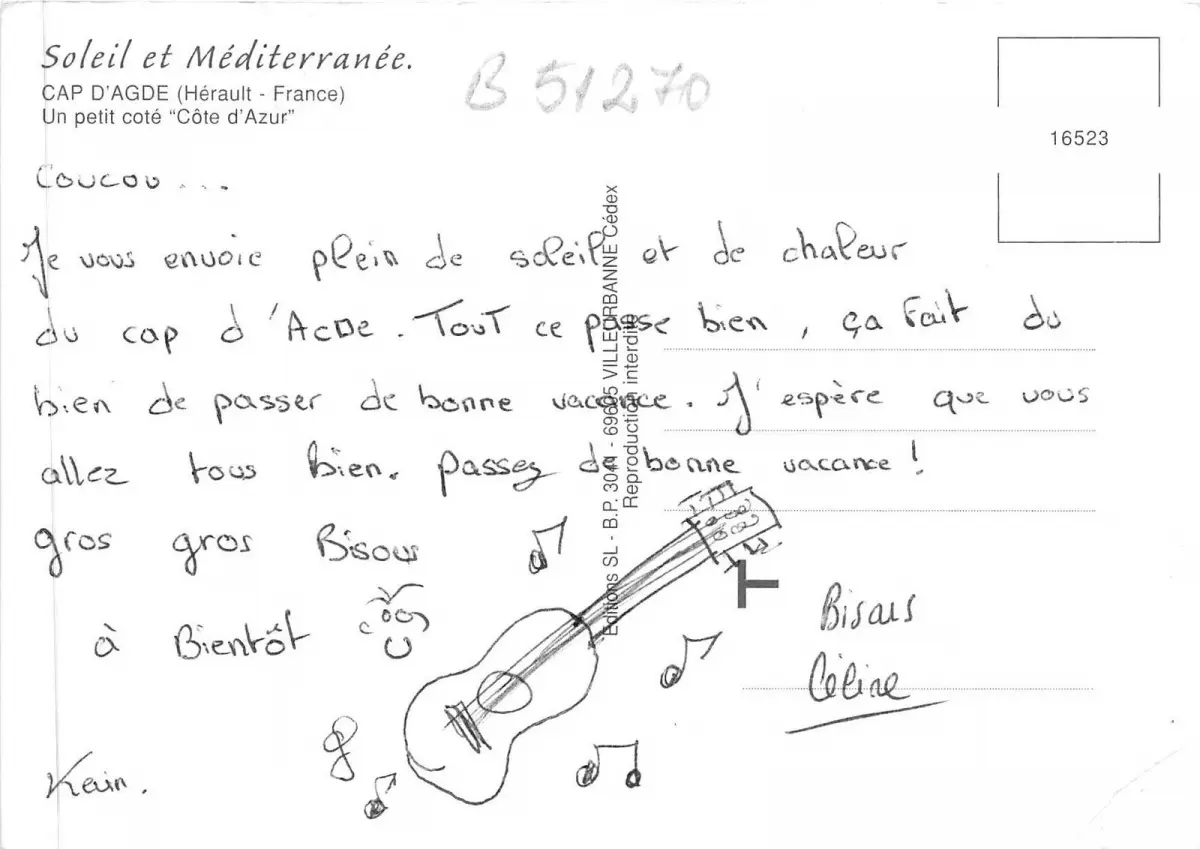 Soleil et Méditerranée.
CAP D'AGDE (Hérault - France)
Un petit coté "Côte d'Azur"
B 51270
16523
Coucou ...
Je vous envoie plein de soleil et de chaleur
du cap d'AGDe. Tout ce passe bien, ça fait du
bien de passer de bonne vacance. J'espère que vous
allez tous bien. passez de bonne vacance !
gros gros Bisous
à Bientôt
Kevin.
Bisous
Céline
Editions SL - B.P. 3041 - 69605 VILLEURBANNE Cédex
Reproduction interdite